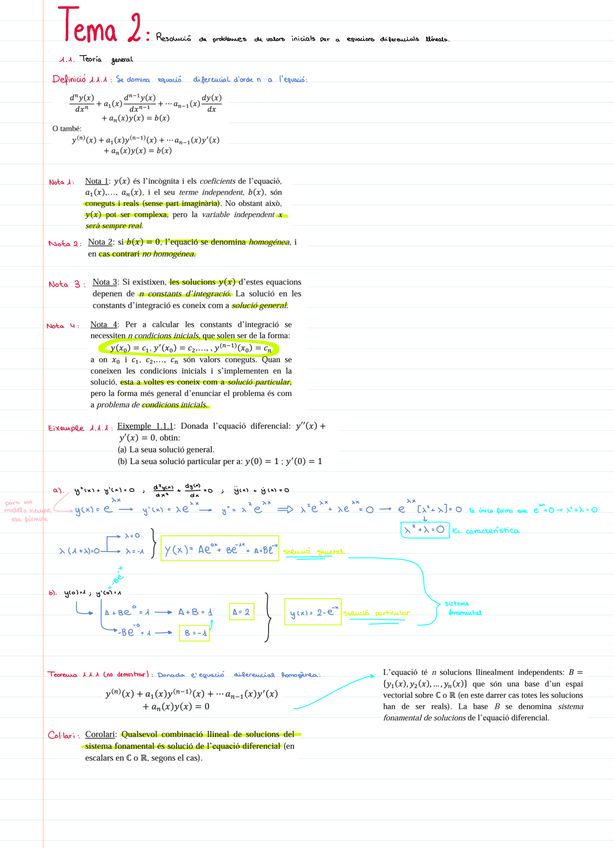 Tema 2: Resolució de problemes de valors inicials per a equacions diferencials lineals.
1.1. Teoria general
Definició 1.1.1: Se domina equació diferencial d'orde n a l'equació:
dⁿy(x)/dxⁿ + a₁(x) dⁿ⁻¹y(x)/dxⁿ⁻¹ + ⋯ aₙ₋₁(x) dy(x)/dx
+ aₙ(x)y(x) = b(x)
O també:
y⁽ⁿ⁾(x) + a₁(x)y⁽ⁿ⁻¹⁾(x) + ⋯ aₙ₋₁(x)y′(x)
+ aₙ(x)y(x) = b(x)
Nota 1: Nota 1: y(x) és l'incògnita i els coeficients de l'equació,
a₁(x),…, aₙ(x), i el seu terme independent, b(x), són
coneguts i reals (sense part imaginària). No obstant això,
y(x) pot ser complexa, pero la variable independent x
serà sempre real.
Nota 2: Nota 2: si b(x) = 0, l'equació se denomina homogénea, i
en cas contrari no homogénea.
Nota 3: Nota 3: Si existixen, les solucions y(x) d'estes equacions
depenen de n constants d'integració. La solució en les
constants d'integració es coneix com a solució general.
Nota 4: Nota 4: Per a calcular les constants d'integració se
necessiten n condicions inicials, que solen ser de la forma:
y(x₀) = c₁, y′(x₀) = c₂,…, , y⁽ⁿ⁻¹⁾(x₀) = cₙ
a on x₀ i c₁, c₂,…, cₙ són valors coneguts. Quan se
coneixen les condicions inicials i s'implementen en la
solució, esta a voltes es coneix com a solució particular,
pero la forma més general d'enunciar el problema és com
a problema de condicions inicials.
Eixemple 1.1.1: Eixemple 1.1.1: Donada l'equació diferencial: y′′(x) +
y′(x) = 0, obtin:
(a) La seua solució general.
(b) La seua solució particular per a: y(0) = 1 ; y′(0) = 1
a). y''(x) + y'(x) = 0 ; d²y(x)/dx² + dy(x)/dx = 0 ; ÿ(x) + ẏ(x) = 0
y(x) = e^λx → y' = λe^λx → y'' = λ²e^λx ⇒ λ²e^λx + λe^λx = 0 → e^λx [λ²+λ] = 0
λ² + λ = 0 Eq característica
λ(λ+1)=0 λ=0
λ=-1
y(x) = Ae^0x + Be^-1x = A+Be^-x solució general
-Be^-x
b). y(0)=1 ; y'(0)=1
A + Be⁰ = 1 → A+B = 1 A = 2
-Be⁰ = 1 → B = -1
y(x) = 2-e^-x solució particular
sistema
fonamental
Teorema 1.1.1 (no demostrar): Donada l'equació diferencial homogènea:
y⁽ⁿ⁾(x) + a₁(x)y⁽ⁿ⁻¹⁾(x) + ⋯ aₙ₋₁(x)y′(x)
+ aₙ(x)y(x) = 0
L'equació té n solucions llinealment independents: B =
{y₁(x), y₂(x), … , yₙ(x)} que són una base d'un espai
vectorial sobre ℂ o ℝ (en este darrer cas totes les solucions
han de ser reals). La base B se denomina sistema
fonamental de solucions de l'equació diferencial.
Col·lari: Corolari: Qualsevol combinació llineal de solucions del
sistema fonamental és solució de l'equació diferencial (en
escalars en ℂ o ℝ, segons el cas).